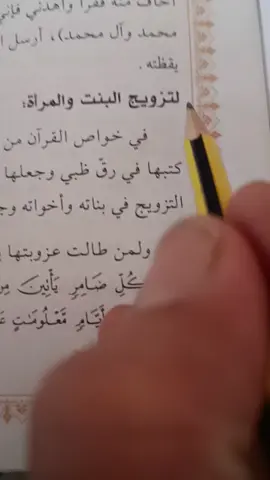 أخاف منه فقراً وأهدني فإني
محمد وآل محمد)، أرسل
يقظته .
لتزويج البنت والمرأة:
في خواص القرآن من
كتبها في رقّ ظبي وجعلها
التزويج في بناته وأخواته
ولمن طالت عزوبتها
كُلِّ ضَامِرٍ يَأْتِينَ مِن
أَيَّامٍ مَّعْلُومَاتٍ